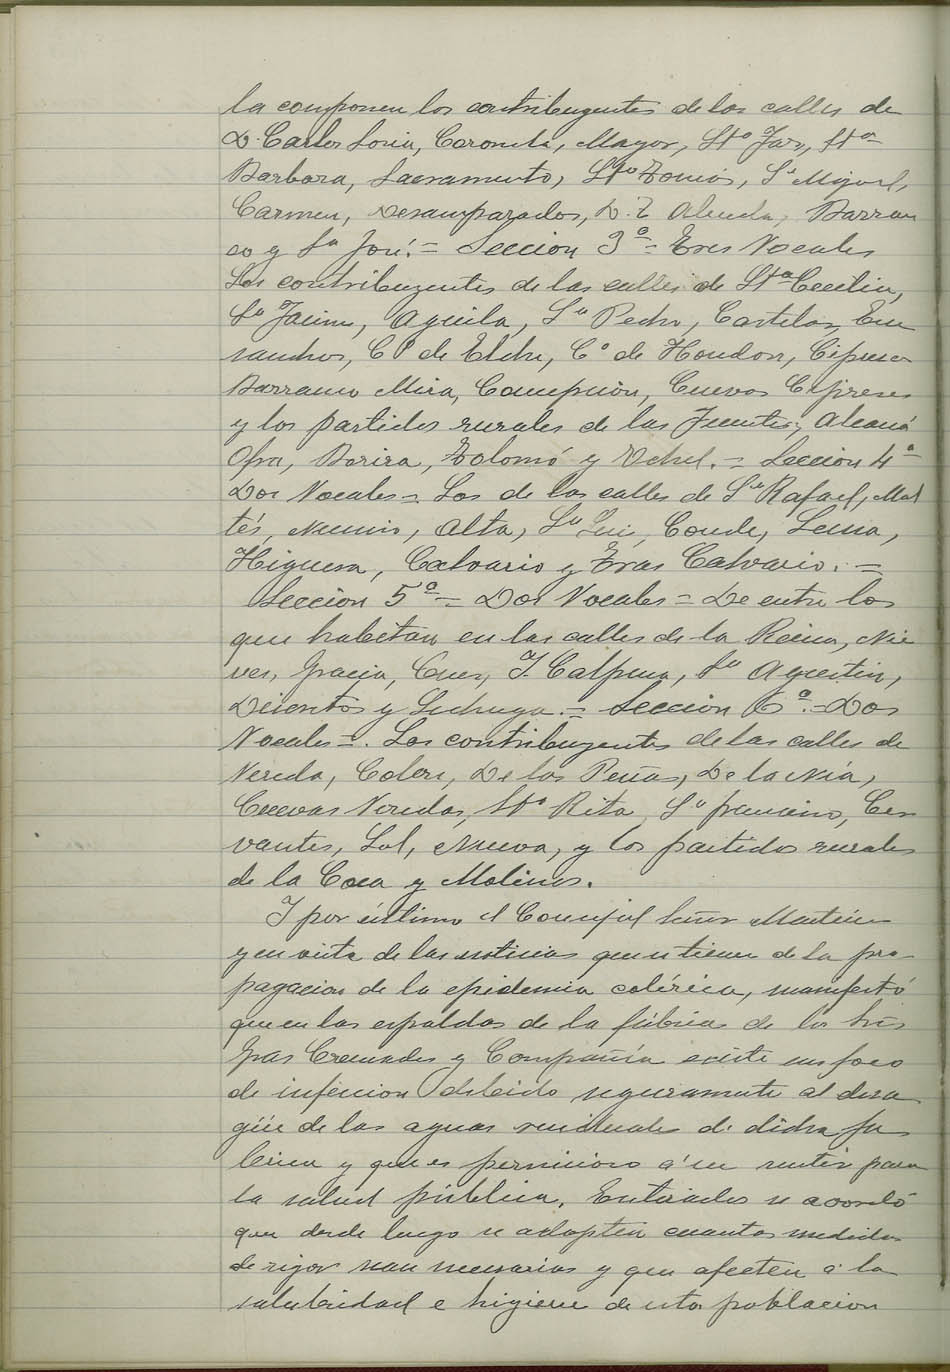 la componen los contribuyentes de las calles de
D. Carlos Soria, Coronela, Mayor, Stº Far, Stª
Barbara, Sacramento, Stº Tomás, Sⁿ Miguel,
Carmen, Desamparados, D. T. Aluda, Barran
co y Sⁿ José. = Seccion 3ª = Tres Vocales
Los contribuyentes de las calles de Stª Cecilia,
Sⁿ Jaime, Aguila, Sⁿ Pedro, Castelar, En
sanches, Cº de Elche, Cº de Hondon, Cipreses
Barranco Mira, Concepción, Cuevas Cipreses
y los partidos rurales de las Fuentes, Alcaná
Ofra, Borisa, Tolomó y Uchel. = Seccion 4ª =
Dos Vocales = Los de las calles de Sⁿ Rafael, Mal
tés, Nuncio, Alta, Sⁿ Luis, Conde, Leuna,
Higuera, Calvario y Eras Calvario. =
Seccion 5ª = Dos Vocales = De entre los
que habitan en las calles de la Reina, Nie
ves, Gracia, Cruz, T. Calpena, Sⁿ Agustin,
Desiertos y Lechuga. = Seccion 6ª = Dos
Vocales =. Los contribuyentes de las calles de
Vereda, Colon, De las Peñas, De la Mía,
Cuevas Veredas, Stª Rita, Sⁿ Francisco, Cer
vantes, Sol, Nueva, y los partidos rurales
de la Coca y Molinos.
Y por último el Concejal Señor Martinez
y en vista de las noticias que se tienen de la pro
pagacion de la epidemia colérica, manifestó
que en las espaldas de la fábrica de los Sres
Gras Cremades y Compañía existe un foco
de infeccion debido seguramente al desa
güe de las aguas residuales de dicha fa
brica y que es pernicioso á su sentir para
la salud pública. Enterados se acordó
que desde luego se adopten cuantas medidas
de rigor sean necesarias y que afecten á la
salubridad e higiene de esta poblacion